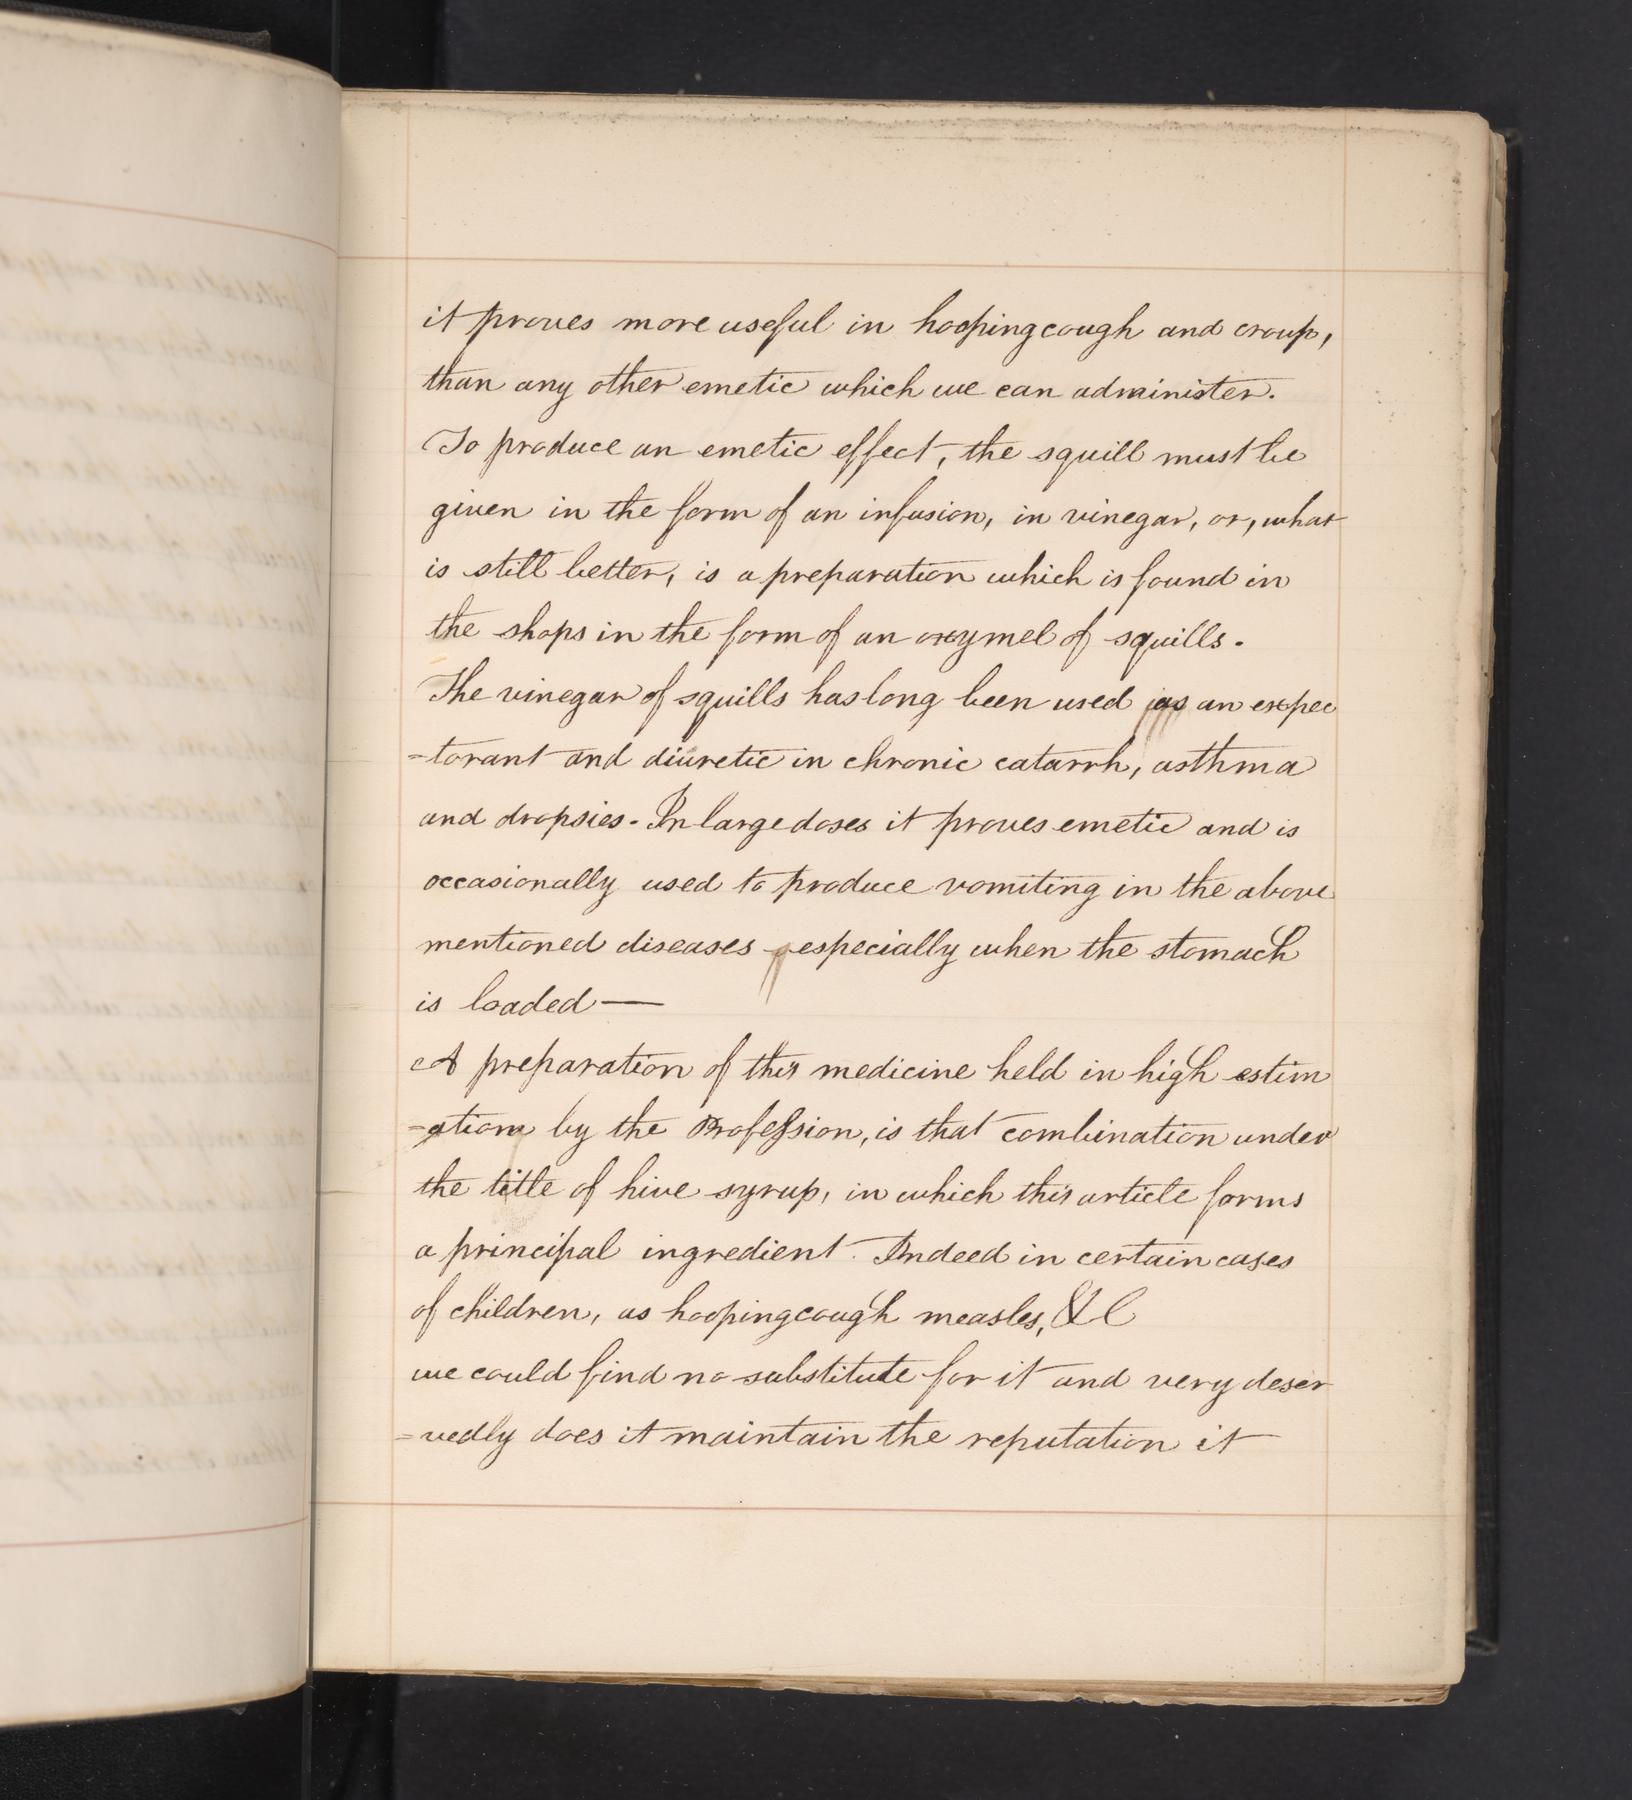 it proves more useful in hoopingcough and croup,
than any other emetic which we can administer.
To produce an emetic effect, the squill must be
given in the form of an infusion, in vinegar, or, what
is still better, is a preparation which is found in
the shops in the form of an oxymel of squills.
The vinegar of squills has long been used as an expec
-torant and diuretic in chronic catarrh, asthma
and dropsies. In large doses it proves emetic and is
occasionally used to produce vomiting in the above
mentioned diseases especially when the stomach
is loaded—
A preparation of this medicine held in high estim
-ation by the Profession, is that combination under
the title of hive syrup, in which this article forms
a principal ingredient. Indeed in certain cases
of children, as hoopingcough measles, &C
we could find no substitute for it and very deser
=vedly does it maintain the reputation it